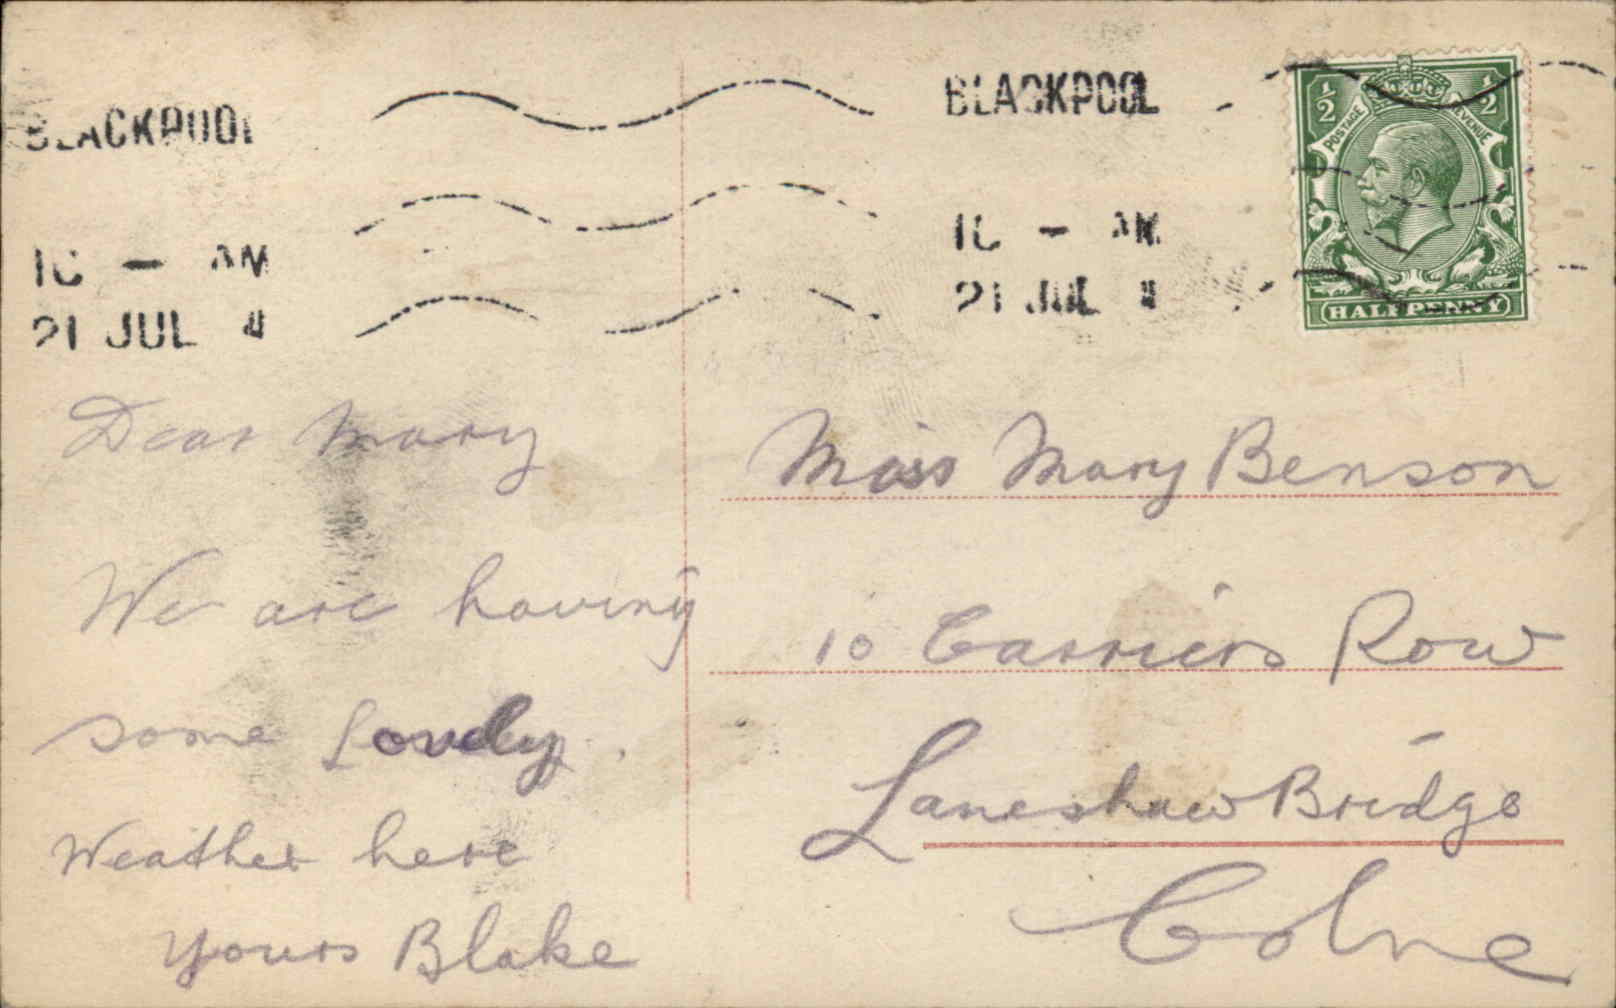 BLACKPOOL
10 - AM
21 JUL
BLACKPOOL
10 - AM
21 JUL
1/2
1/2
POSTAGE
REVENUE
HALFPENNY
Dear Mary
We are having
some lovely.
Weather here
yours Blake
Miss Mary Benson
10 Carriers Row
Laneshaw Bridge
Colne